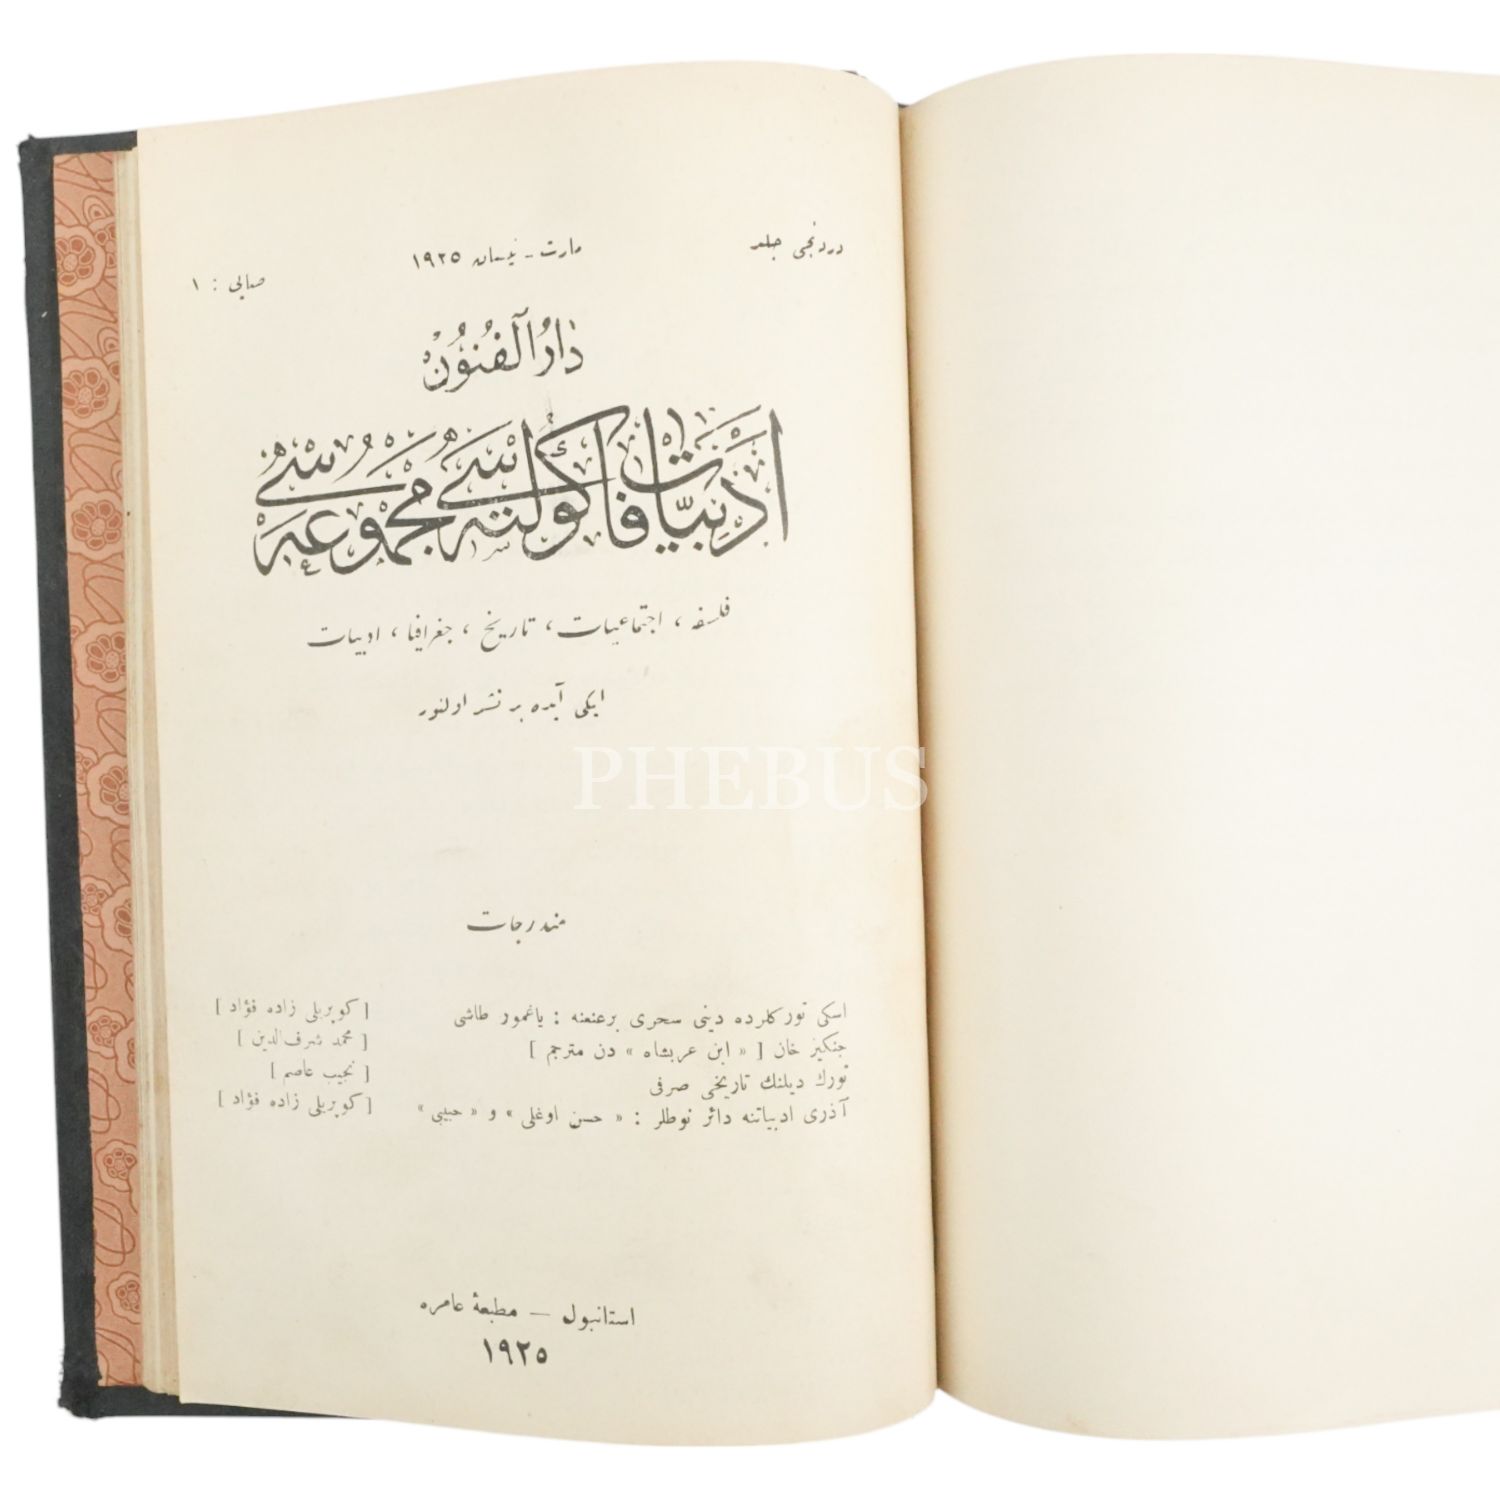 دردنجی جلد
مارت - نیسان ١٩٢٥
صایی : ١
دارالفنون
ادبیات فاکولته سی مجموعه سی
فلسفه ، اجتماعیات ، تاریخ ، جغرافیا ، ادبیات
ایکی آیده بر نشر اولنور
PHEBUS
مندرجات
اسکی تورکلرده دینی سحری برعنعنه : یاغمور طاشی [ کوپریلی زاده فؤاد ]
جنکیز خان [ « ابن عربشاه » دن مترجم ] [ محمد شرف الدین ]
تورك دیلنك تاریخی صرفی [ نجیب عاصم ]
آذری ادبیاتنه دائر نوطلر : « حسن اوغلی » و « حبیبی » [ کوپریلی زاده فؤاد ]
استانبول — مطبعهٔ عامره
١٩٢٥